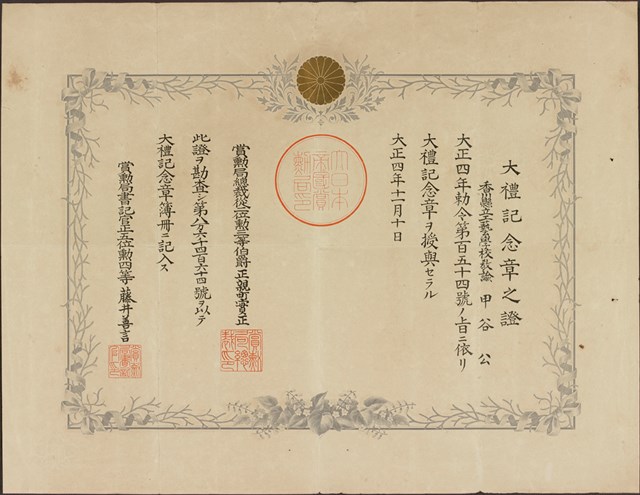 大禮記念章之證
香川縣立工藝學校敎諭 甲谷 公
大正四年勅令第百五十四號ノ旨ニ依リ
大禮記念章ヲ授與セラル
大正四年十一月十日
賞勲局總裁從二位勲二等伯爵正親町實正
此證ヲ勘査シ第八万六千四百六十四號ヲ以テ
大禮記念章簿冊ニ記入ス
賞勲局書記官正五位勲四等藤井善言